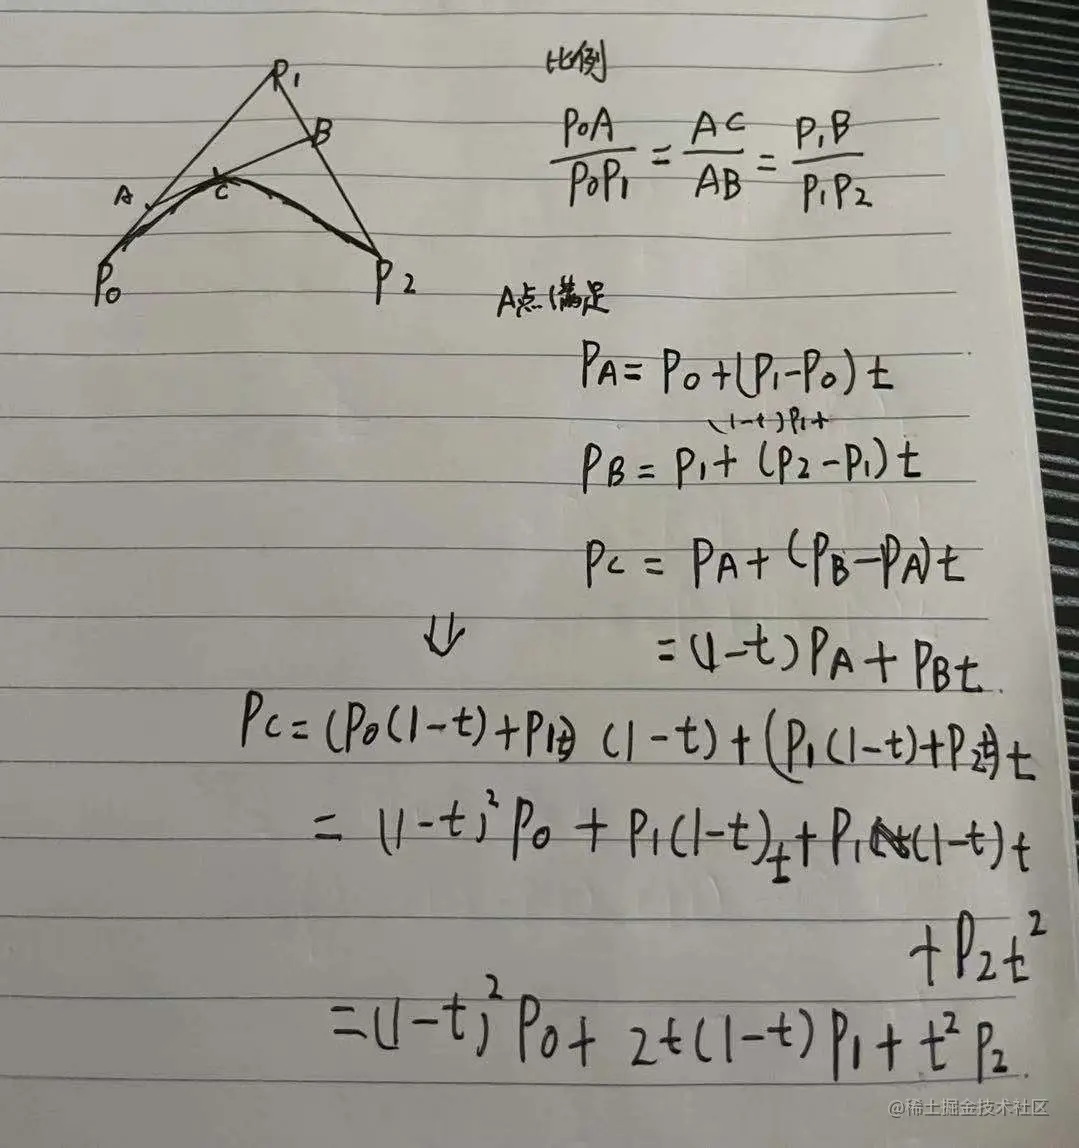 P1
B
A
C
P0
P2
比例
P0A/P0P1 = AC/AB = P1B/P1P2
A点满足
PA = P0 + (P1-P0)t
(1-t)P1+
PB = P1 + (P2-P1)t
PC = PA + (PB-PA)t
= (1-t)PA + PBt
⇓
PC = (P0(1-t)+P1t) (1-t) + (P1(1-t)+P2t)t
= (1-t)²P0 + P1(1-t)t + P1(1-t)t
+P2t²
= (1-t)²P0 + 2t(1-t)P1 + t²P2
@稀土掘金技术社区